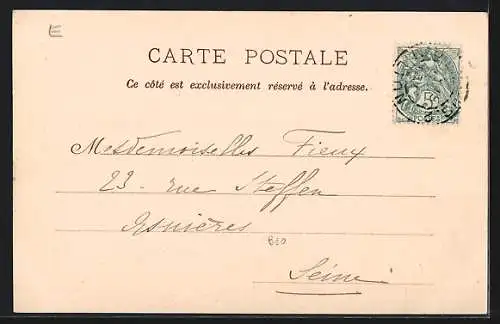 E
CARTE POSTALE
Ce côté est exclusivement réservé à l'adresse.
Mesdemoiselles Fieux
23 - rue Steffen
Asnières
Seine